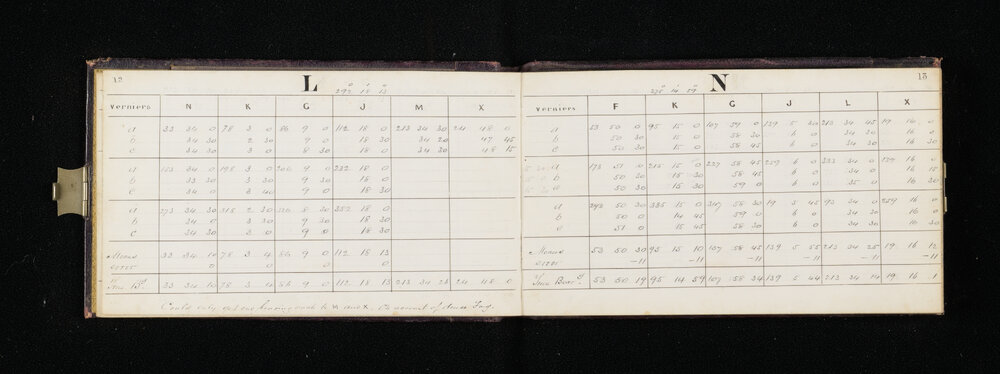 12
L
292 18 13
Verniers N K G J M X
a 33 34 0 78 3 0 86 9 0 112 18 0 213 34 30 24 48 0
b 34 30 2 30 9 0 18 30 34 20 47 45
c 34 30 3 0 8 30 18 0 34 30 48 15
a 153 34 0 198 3 0 206 9 0 232 18 0
b 33 30 3 30 9 30 18 0
c 34 0 3 40 9 0 18 30
a 273 34 30 318 2 30 326 8 30 352 18 0
b 34 0 3 30 9 0 18 30
c 34 30 3 0 9 0 18 30
Means 33 34 10 78 3 4 86 9 0 112 18 13
error 0 0 0 0
True B.g 33 34 10 78 3 4 86 9 0 112 18 13 213 34 28 24 48 0
Could only get one bearing each to M and X, on account of dense Fog.
13
N
278 14 29
Verniers F K G J L X
a 53 50 0 95 15 0 107 59 0 139 5 30 213 34 45 19 16 0
b 50 30 15 0 58 30 6 0 34 30 16 0
c 50 30 15 0 58 45 6 0 34 30 16 30
a 173 51 0 215 15 0 227 58 45 259 6 0 333 34 0 139 16 0
b 50 30 15 30 58 45 6 0 34 0 16 15
c 50 30 15 30 59 0 6 0 35 0 16 30
a 293 50 30 335 15 0 347 58 30 19 5 45 93 34 0 259 16 0
b 50 0 14 45 59 0 6 0 34 30 16 0
c 51 0 15 45 58 30 6 0 34 30 16 30
Means 53 50 30 95 15 10 107 58 45 139 5 55 213 34 25 19 16 12
error -11 -11 -11 -11 -11 -11
True Bear.g 53 50 19 95 14 59 107 58 34 139 5 44 213 34 14 19 16 1